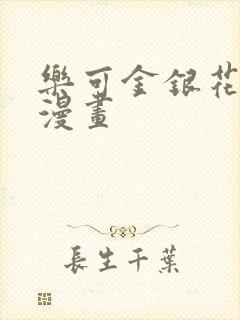 樂可金銀花
漫畫
長生千葉